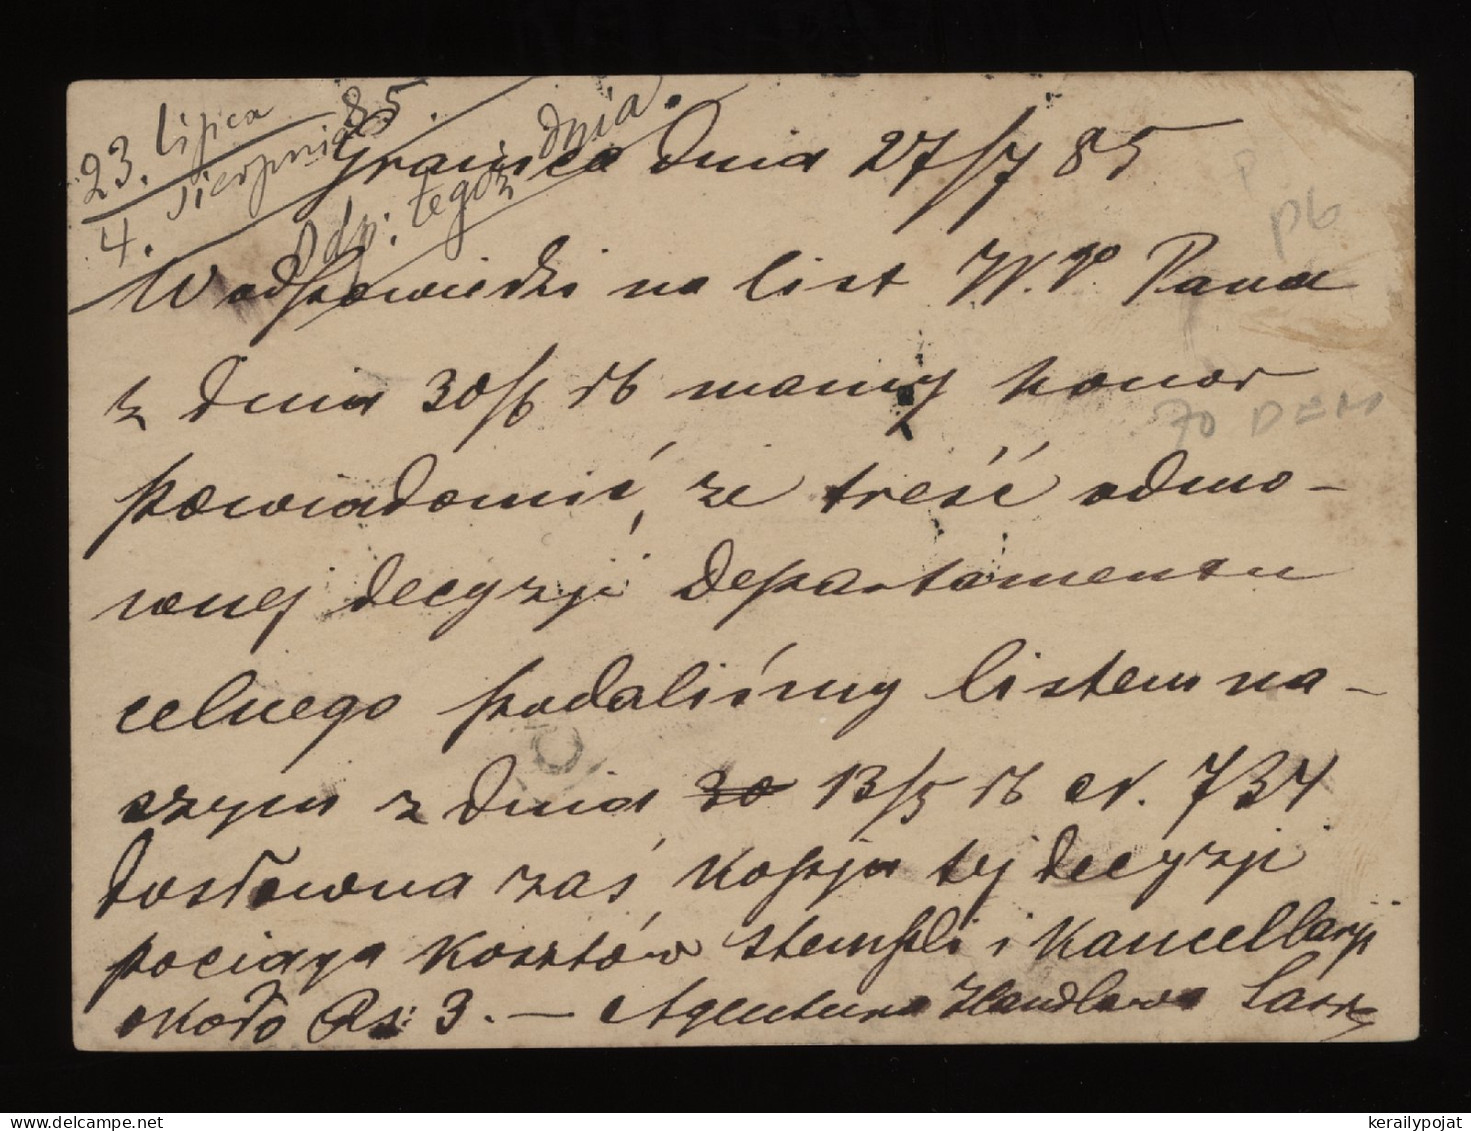 23. lipca 85.
4. sierpnia
Odp: tegoż dnia.
Granica dnia 27/7 85
P
Pb
W odpowiedzi na list W. P. Pana
z dnia 30/6 rb mamy honor
70 DEM
powiadomić, że treść odmo-
wnej decyzji departamentu
celnego podaliśmy listem na-
szym z dnia 13/5 rb N. 734
dosłowna zaś kopja tej decyzji
pociąga kosztów stempli i kancellarji
około Rs: 3. — Agentura Handlowa
kerailypojat